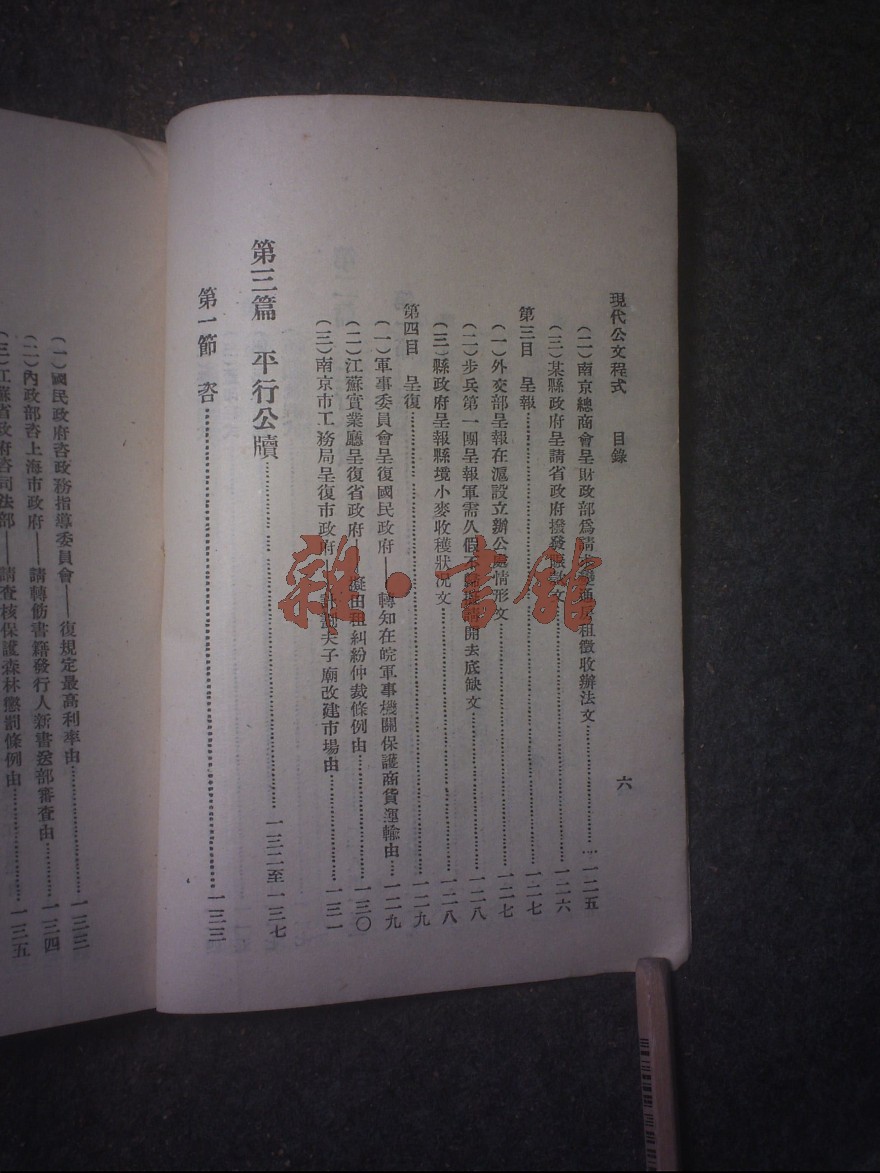 現代公文程式　目錄　六
(二)南京總商會呈財政部爲請求變通房租徵收辦法文……一二五
(三)某縣政府呈請省政府撥發賑款文……一二六
第三目　呈報……一二七
(一)外交部呈報在滬設立辦公處情形文……一二七
(二)步兵第一團呈報軍需久假不歸擬請開去底缺文……一二八
(三)縣政府呈報縣境小麥收穫狀況文……一二八
第四目　呈復……一二九
(一)軍事委員會呈復國民政府——轉知在皖軍事機關保護商貨運輸由……一二九
(二)江蘇實業廳呈復省政府——擬田租糾紛仲裁條例由……一三〇
(三)南京市工務局呈復市政府 計劃夫子廟改建市場由……一三一
第三篇　平行公牘……一三二至一三七
第一節　咨……一三三
(一)國民政府咨政務指導委員會——復規定最高利率由……一三三
(二)內政部咨上海市政府——請轉飭書籍發行人新書送部審查由……一三四
(三)江蘇省政府咨司法部——請查核保護森林懲罰條例由……一三五
雜·書館